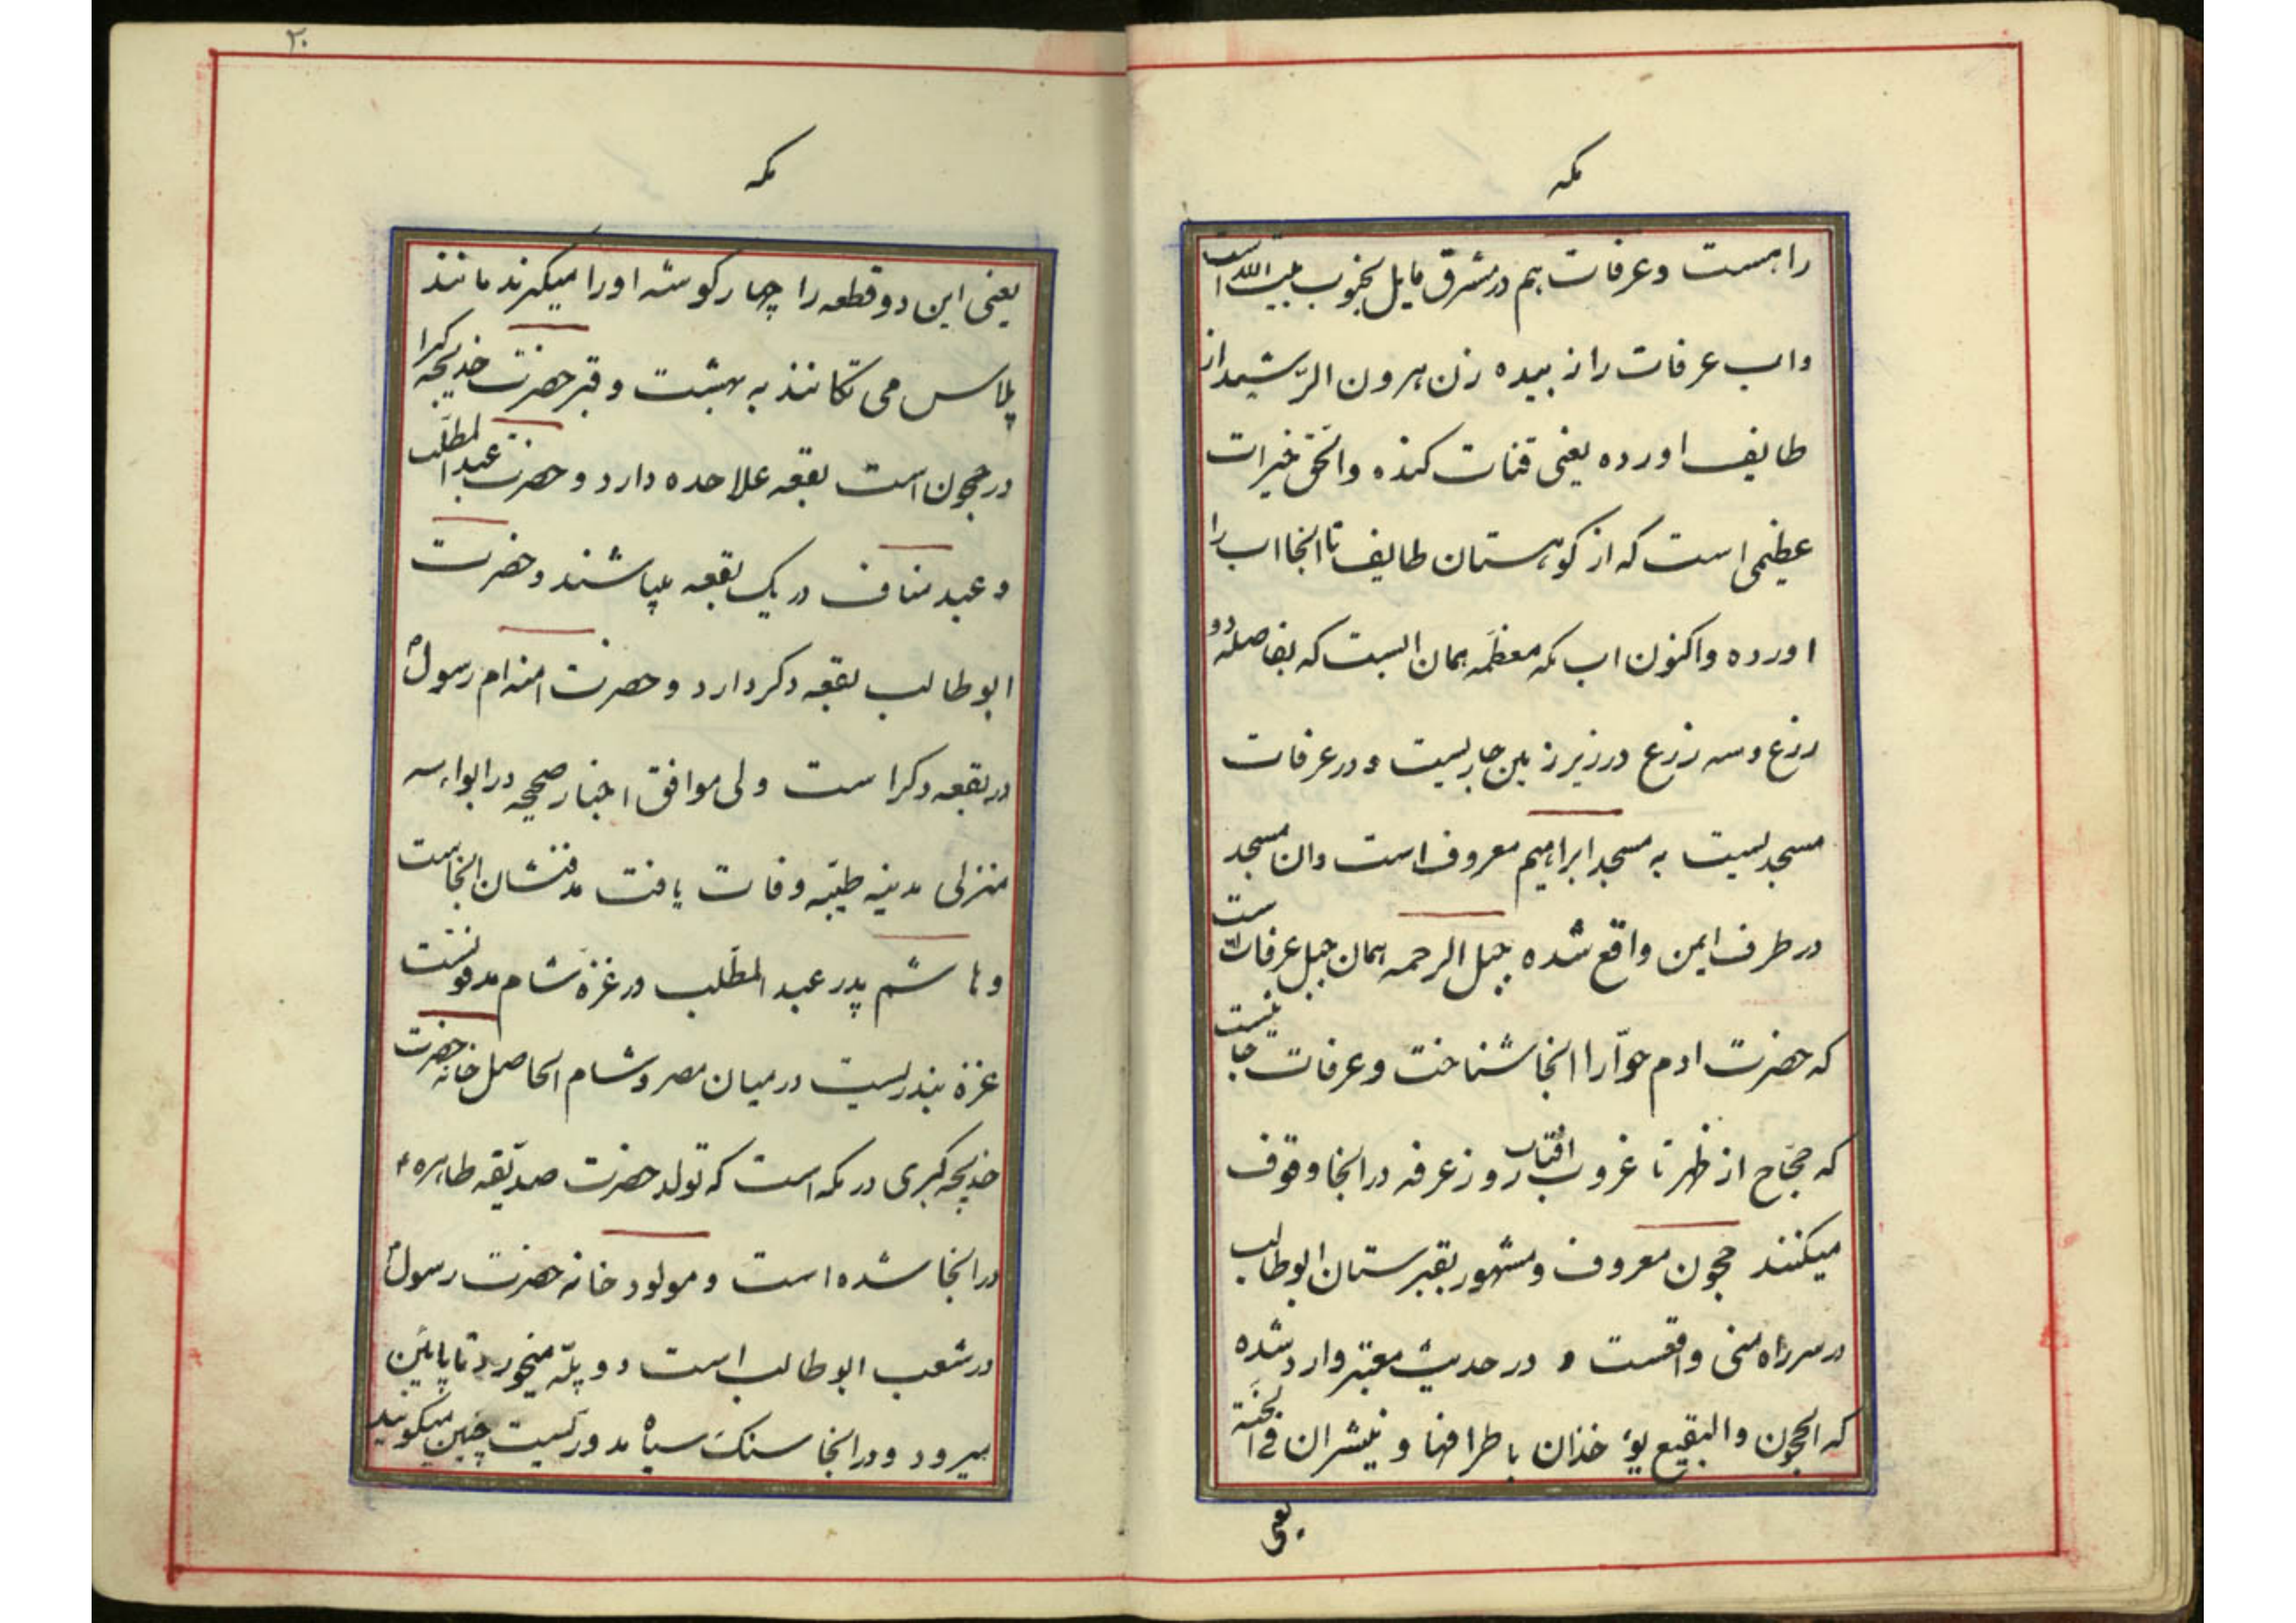 مکه
راهست وعرفات هم در مشرق مایل بجنوب بیت الله است
واب عرفات را زبیده زن هرون الرّشید از
طایف اورده یعنی قنات کنده والحق خیرات
عظیمی است که از کوهستان طایف تا انجا اب را
اورده واکنون اب مکه معظمه همان ابست که بفاصله دو
زرع وسه زرع در زیر زمین جاریست و در عرفات
مسجدیست به مسجد ابراهیم معروف است وان مسجد
در طرف ایمن واقع شده جبل الرحمه همان جبل عرفات است
که حضرت ادم حوّا را انجا شناخت وعرفات جائیست
که حجّاج از ظهر تا غروب افتاب روز عرفه در انجا وقوف
میکنند حجون معروف ومشهور بقبرستان ابوطالب
در سر راه منی واقعست و در حدیث معتبر وارد شده
که الحجون والبقیع یؤخذان باطرافها و ینشران فی الجنة
یعنی
۲۰
مکه
یعنی این دو قطعه را چهار کوشه اورا میکیرند مانند
پلاس می تکانند به بهشت وقبر حضرت خدیجه کبرا
در حجون است بقعه علاحده دارد و حضرت عبد المطلب
و عبد مناف در یک بقعه میباشند و حضرت
ابوطالب بقعه دکر دارد و حضرت امنه ام رسول ص
در بقعه دکر است ولی موافق اخبار صحیحه در ابواء سه
منزلی مدینه طیّبه وفات یافت مدفنشان انجاست
وهاشم پدر عبد المطّلب در غزّه شام مدفونست
غزة بندریست در میان مصر وشام الحاصل خانه حضرت
خدیجه کبری در مکه است که تولد حضرت صدّیقه طاهره ع
در انجا شده است و مولود خانه حضرت رسول ص
در شعب ابوطالب است دو پلّه میخورد تا پایین
میرود و در انجا سنک سیاه مدوریست چنین میکویند